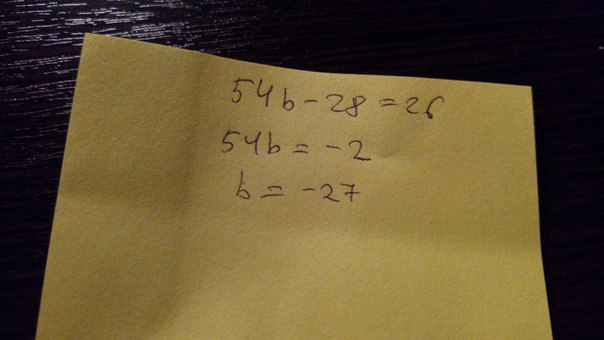 54b-28=26
54b=-2
b=-27